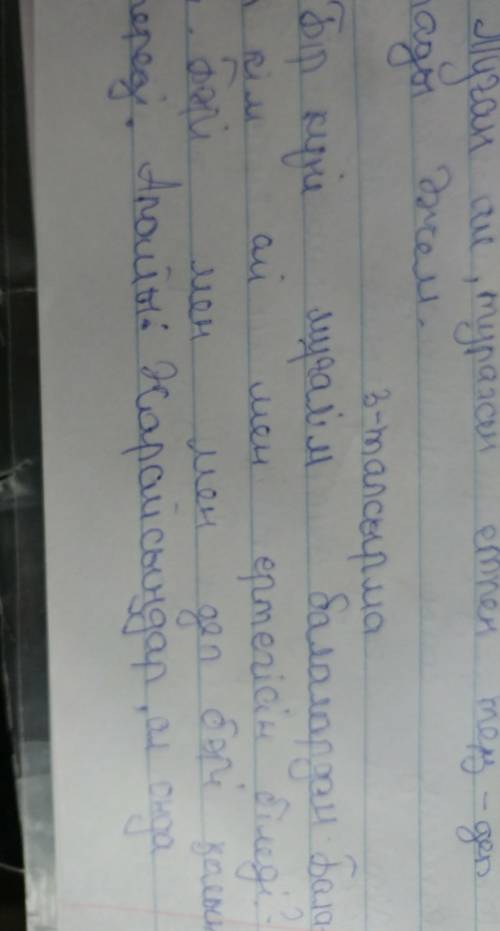 Туған ай, тураған етпен тең - деп
тады Әжем.
3-тапсырма
Бір күні мұғалім балалардан. Бала
кім ай мен ертегісін біледі?
. бәрі мен мен деп бәрі қолын
тереді. Апайы: Жарайсыңдар, ал онда